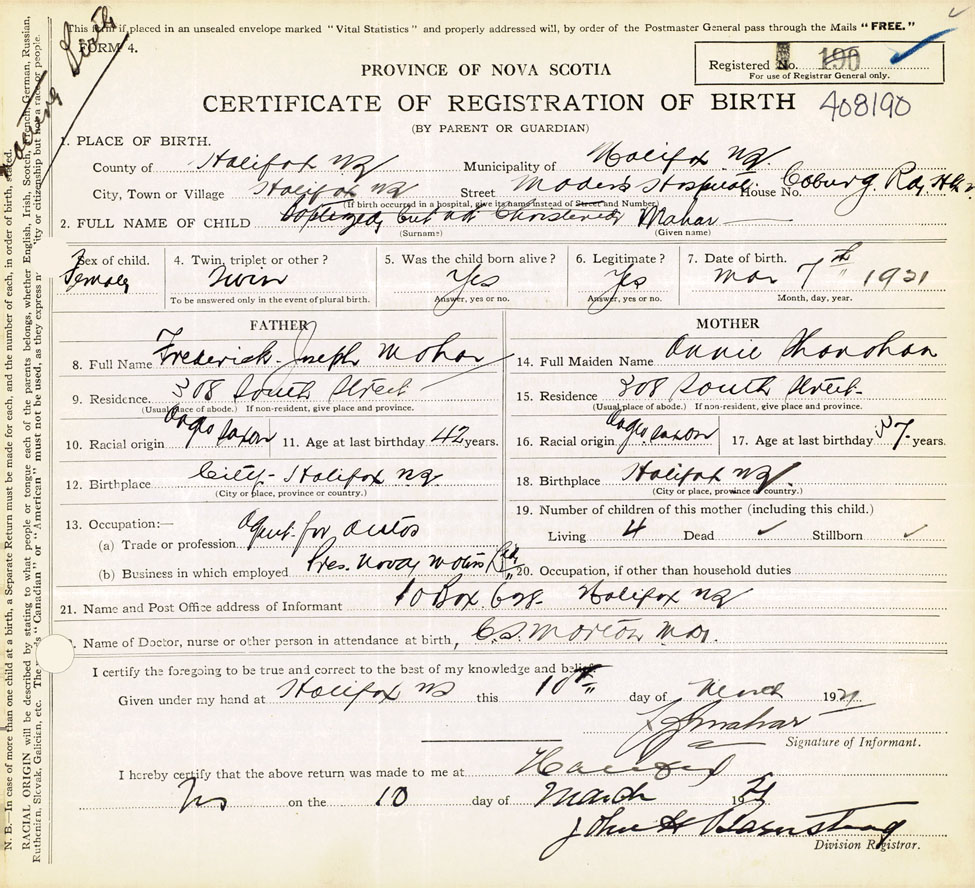 This form if placed in an unsealed envelope marked "Vital Statistics" and properly addressed will, by order of the Postmaster General pass through the Mails "FREE."
FORM 4.
Birth
Registered No. 190
For use of Registrar General only.
PROVINCE OF NOVA SCOTIA
CERTIFICATE OF REGISTRATION OF BIRTH 408190
(BY PARENT OR GUARDIAN)
1. PLACE OF BIRTH.
County of Halifax NS Municipality of Halifax NS.
City, Town or Village Halifax NS Street Hospital House No. Coburg Rd, Hfx
(If birth occurred in a hospital, give its name instead of Street and Number)
2. FULL NAME OF CHILD but Christened Mahar
(Surname) (Given name)
Sex of child. 4. Twin, triplet or other? 5. Was the child born alive? 6. Legitimate? 7. Date of birth.
Female Twin Yes Yes Mar 7th 1921
To be answered only in the event of plural birth. Answer, yes or no. Answer, yes or no. Month, day, year.
FATHER
8. Full Name Frederick Joseph Mahar
9. Residence. 308 South Street
(Usual place of abode.) If non-resident, give place and province.
10. Racial origin Anglo Saxon 11. Age at last birthday 42 years.
12. Birthplace City - Halifax NS
(City or place, province or country.)
13. Occupation:—
(a) Trade or profession Agent for autos
(b) Business in which employed Pres. Nova Motors Ltd
MOTHER
14. Full Maiden Name Annie Shanahan
15. Residence 308 South Street
(Usual place of abode.) If non-resident, give place and province.
16. Racial origin Anglo Saxon 17. Age at last birthday 37 years.
18. Birthplace Halifax NS.
(City or place, province or country.)
19. Number of children of this mother (including this child.)
Living 4 Dead ✓ Stillborn ✓
20. Occupation, if other than household duties
21. Name and Post Office address of Informant Box Halifax NS
Name of Doctor, nurse or other person in attendance at birth, C.S. Morton
I certify the foregoing to be true and correct to the best of my knowledge and belief.
Given under my hand at Halifax NS this 10th day of March 1921
F J Mahar
Signature of Informant.
I hereby certify that the above return was made to me at Halifax
NS on the 10 day of March 1921
John H Barnstead
Division Registrar.
N. B.—In case of more than one child at a birth, a Separate Return must be made for each, and the number of each, in order of birth, stated.
RACIAL ORIGIN will be described by stating to what people or tongue each of the parents belongs, whether English, Irish, Scotch, French, German, Russian,
Ruthenian, Slovak, Galician, etc. The "Canadian" or "American" must not be used, as they express citizenship but not a race or people.